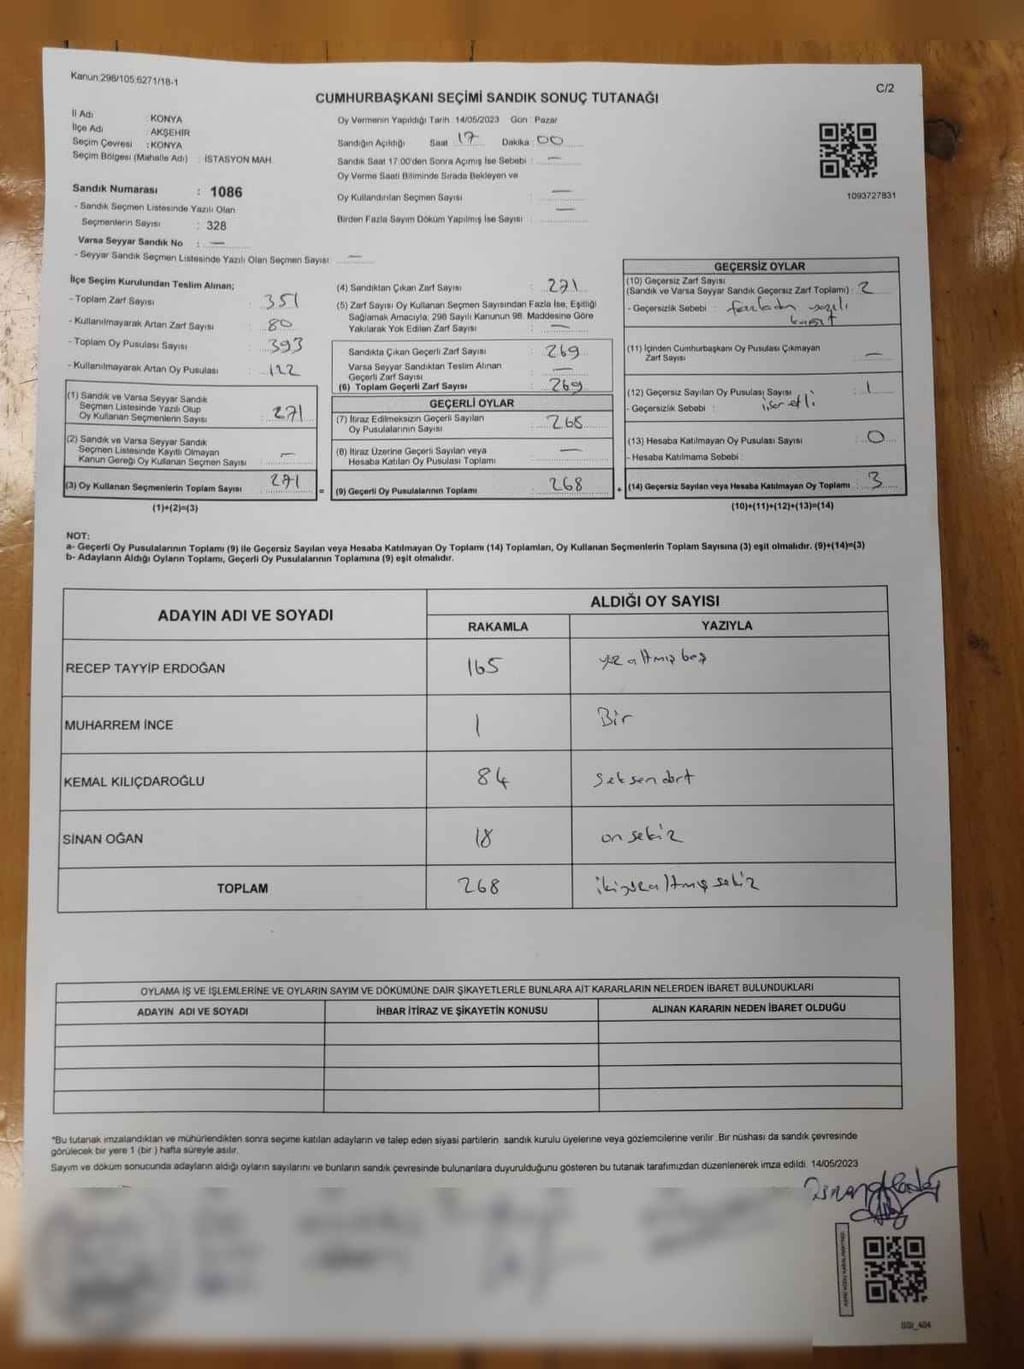 Kanun:298/105.6271/18-1
C/2
CUMHURBAŞKANI SEÇİMİ SANDIK SONUÇ TUTANAĞI
İl Adı KONYA
İlçe Adı AKŞEHİR
Seçim Çevresi :KONYA
Seçim Bölgesi (Mahalle Adı) : İSTASYON MAH.
Sandık Numarası : 1086
- Sandık Seçmen Listesinde Yazılı Olan
Seçmenlerin Sayısı : 328
Varsa Seyyar Sandık No : —
- Seyyar Sandık Seçmen Listesinde Yazılı Olan Seçmen Sayısı : —
Oy Vermenin Yapıldığı Tarih 14/05/2023 Gün : Pazar
Sandığın Açıldığı Saat 17 Dakika : 00
Sandık Saat 17.00'den Sonra Açımış İse Sebebi : —
Oy Verme Saati Bitiminde Sırada Bekleyen ve
Oy Kullandırılan Seçmen Sayısı : —
Birden Fazla Sayım Döküm Yapılmış İse Sayısı : —
1093727831
İlçe Seçim Kurulundan Teslim Alınan;
- Toplam Zarf Sayısı : 351
- Kullanılmayarak Artan Zarf Sayısı : 80
- Toplam Oy Pusulası Sayısı : 393
- Kullanılmayarak Artan Oy Pusulası : 122
(1) Sandık ve Varsa Seyyar Sandık
Seçmen Listesinde Yazılı Olup
Oy Kullanan Seçmenlerin Sayısı : 271
(2) Sandık ve Varsa Seyyar Sandık
Seçmen Listesinde Kayıtlı Olmayan
Kanun Gereği Oy Kullanan Seçmen Sayısı : —
(3) Oy Kullanan Seçmenlerin Toplam Sayısı : 271
(1)+(2)=(3)
(4) Sandıktan Çıkan Zarf Sayısı : 271
(5) Zarf Sayısı Oy Kullanan Seçmen Sayısından Fazla İse, Eşitliği
Sağlamak Amacıyla; 298 Sayılı Kanunun 98. Maddesine Göre
Yakılarak Yok Edilen Zarf Sayısı : —
Sandıkta Çıkan Geçerli Zarf Sayısı : 269
Varsa Seyyar Sandıktan Teslim Alınan
Geçerli Zarf Sayısı : —
(6) Toplam Geçerli Zarf Sayısı : 269
=
GEÇERLİ OYLAR
(7) İtiraz Edilmeksizin Geçerli Sayılan
Oy Pusulalarının Sayısı : 268
(8) İtiraz Üzerine Geçerli Sayılan veya
Hesaba Katılan Oy Pusulası Toplamı : —
(9) Geçerli Oy Pusulalarının Toplamı : 268
+
GEÇERSİZ OYLAR
(10) Geçersiz Zarf Sayısı
(Sandık ve Varsa Seyyar Sandık Geçersiz Zarf Toplamı) : 2
- Geçersizlik Sebebi :
(11) İçinden Cumhurbaşkanı Oy Pusulası Çıkmayan
Zarf Sayısı : —
(12) Geçersiz Sayılan Oy Pusulası Sayısı : 1
- Geçersizlik Sebebi : işaretli
(13) Hesaba Katılmayan Oy Pusulası Sayısı : 0
- Hesaba Katılmama Sebebi :
(14) Geçersiz Sayılan veya Hesaba Katılmayan Oy Toplamı : 3
(10)+(11)+(12)+(13)=(14)
NOT:
a- Geçerli Oy Pusulalarının Toplamı (9) ile Geçersiz Sayılan veya Hesaba Katılmayan Oy Toplamı (14) Toplamları, Oy Kullanan Seçmenlerin Toplam Sayısına (3) eşit olmalıdır. (9)+(14)=(3)
b- Adayların Aldığı Oyların Toplamı, Geçerli Oy Pusulalarının Toplamına (9) eşit olmalıdır.
ADAYIN ADI VE SOYADI ALDIĞI OY SAYISI
RAKAMLA YAZIYLA
RECEP TAYYİP ERDOĞAN 165 yüz altmış beş
MUHARREM İNCE 1 Bir
KEMAL KILIÇDAROĞLU 84 Seksendört
SİNAN OĞAN 18 on sekiz
TOPLAM 268 ikiyüzaltmışsekiz
OYLAMA İŞ VE İŞLEMLERİNE VE OYLARIN SAYIM VE DÖKÜMÜNE DAİR ŞİKAYETLERLE BUNLARA AİT KARARLARIN NELERDEN İBARET BULUNDUKLARI
ADAYIN ADI VE SOYADI İHBAR İTİRAZ VE ŞİKAYETİN KONUSU ALINAN KARARIN NEDEN İBARET OLDUĞU
*Bu tutanak imzalandıktan ve mühürlendikten sonra seçime katılan adayların ve talep eden siyasi partilerin sandık kurulu üyelerine veya gözlemcilerine verilir. Bir nüshası da sandık çevresinde
görülecek bir yere 1 (bir) hafta süreyle asılır.
Sayım ve döküm sonucunda adayların aldığı oyların sayılarını ve bunların sandık çevresinde bulunanlara duyurulduğunu gösteren bu tutanak tarafımızdan düzenlenerek imza edildi. 14/05/2023